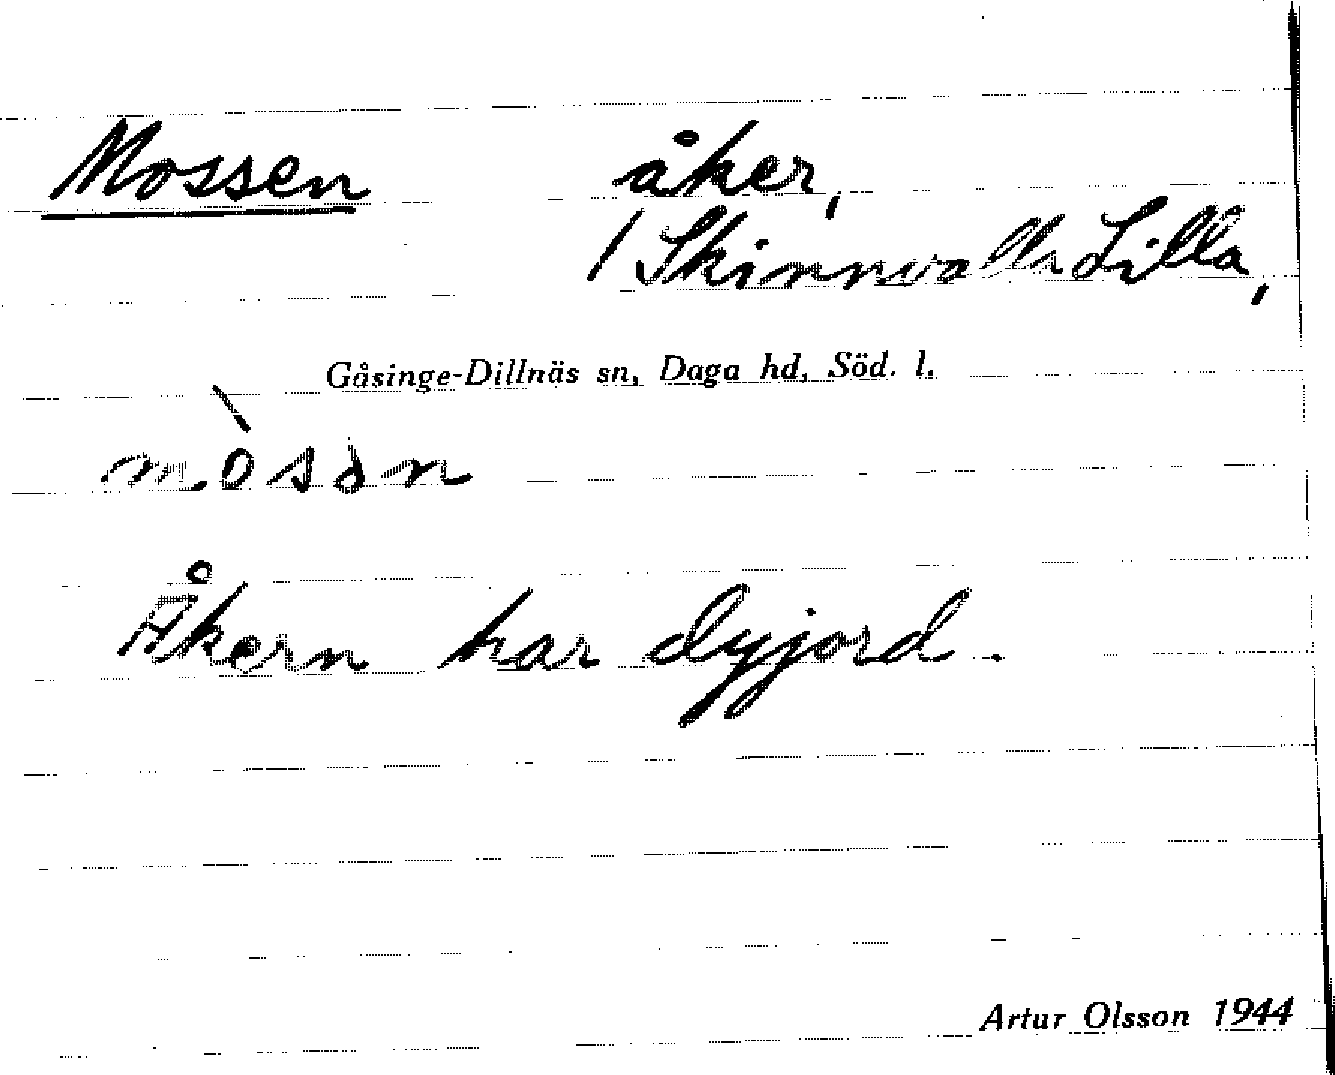 Mossen åker,
/ Skinnvalla Lilla,
Gåsinge-Dillnäs sn, Daga hd, Söd. l.
Åkern har dyjord.
Artur Olsson 1944